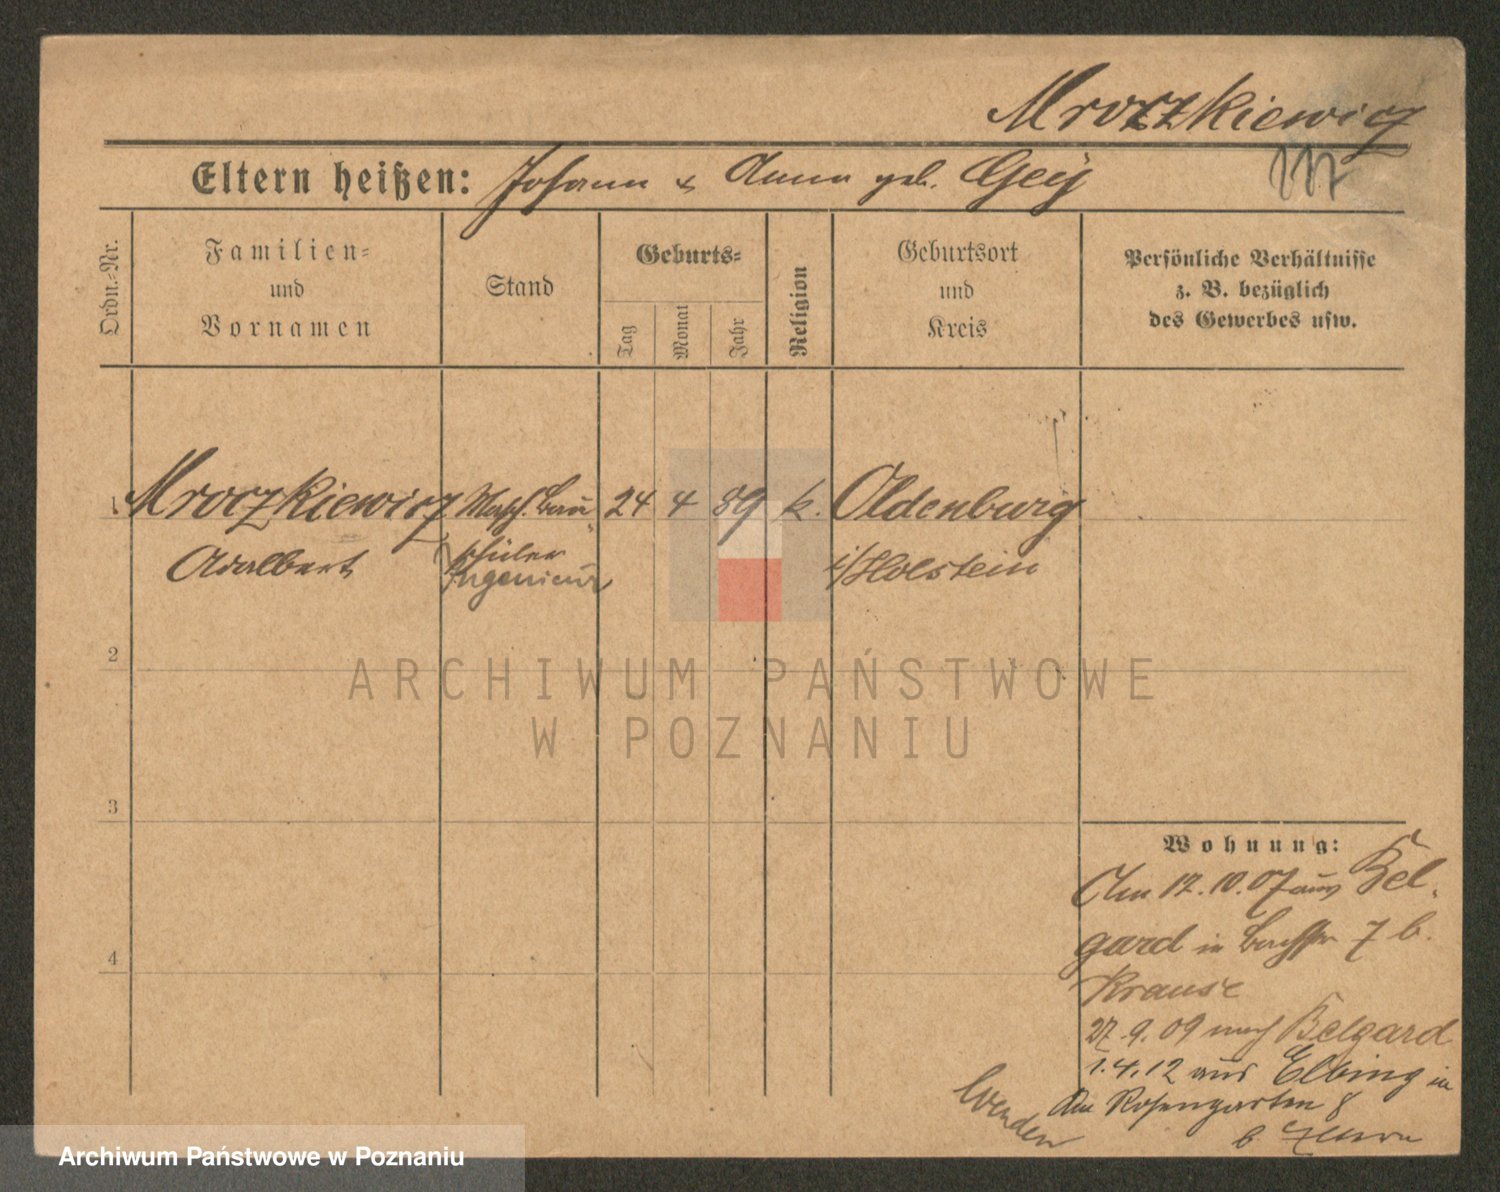 Mroczkiewicz
Eltern heißen: Johann & Anna geb. Geÿ
Ordn.-Nr.
Familien-
und
Vornamen
Stand
Geburts-
Tag
Monat
Jahr
Religion
Geburtsort
und
Kreis
Persönliche Verhältnisse
z. B. bezüglich
des Gewerbes usw.
1 Mroczkiewicz Masch. bau 24 4 89 k. Oldenburg
Adalbert schüler i/Holstein
Ingenieur
2
3
4
ARCHIWUM PAŃSTWOWE
W POZNANIU
Wohnung:
Am 12.10.07 aus Bel-
gard in 7 b.
Krause
27.9.09 nach Belgard
1.4.12 aus Elbing in
Am Rosengarten 8
b.
Wenden
Archiwum Państwowe w Poznaniu